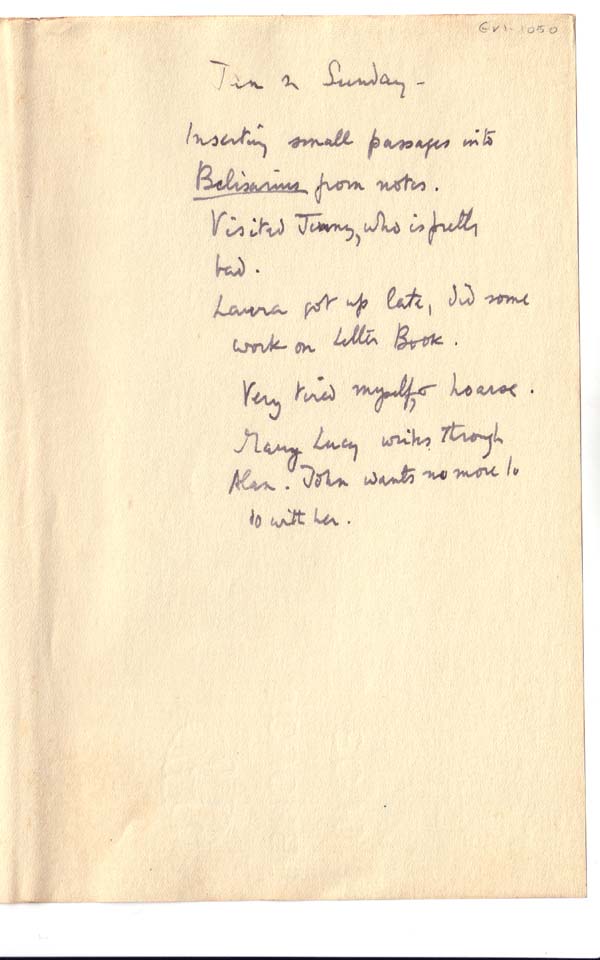 GVI-1050
Jan 2 Sunday -
Inserting small passages into
Belisarius from notes.
Visited Jenny, who is pretty
bad.
Laura got up late, did some
work on Letter Book.
Very tired myself, & hoarse.
Mary Lucy writes through
Alan. John wants no more to
do with her.